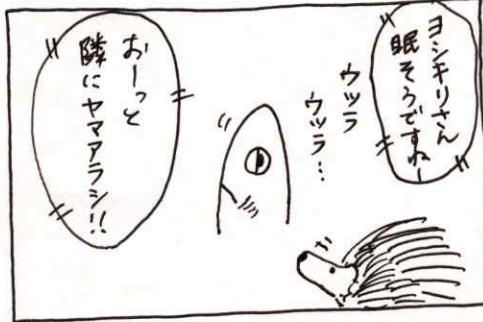 ヨシキリさん
眠そうですねー
ウッラ
ウッラ…
おーっと
隣にヤマアラシ!!